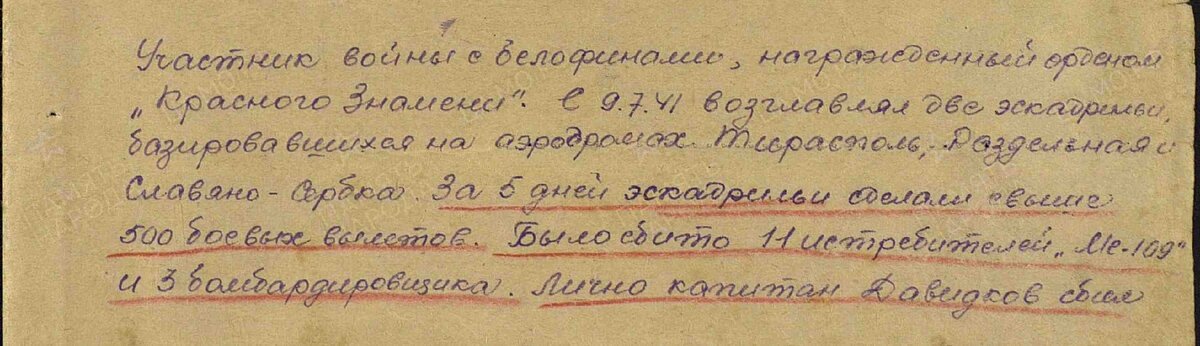 Участник войны с белофинами, награжденный орденом
„Красного Знамени". С 9.7.41 возглавлял две эскадрильи,
базировавшихся на аэродромах Тирасполь, Раздельная и
Славяно-Сербка. За 5 дней эскадрильи сделали свыше
500 боевых вылетов. Было сбито 11 истребителей „Ме-109"
и 3 бомбардировщика. Лично капитан Давидков сбил